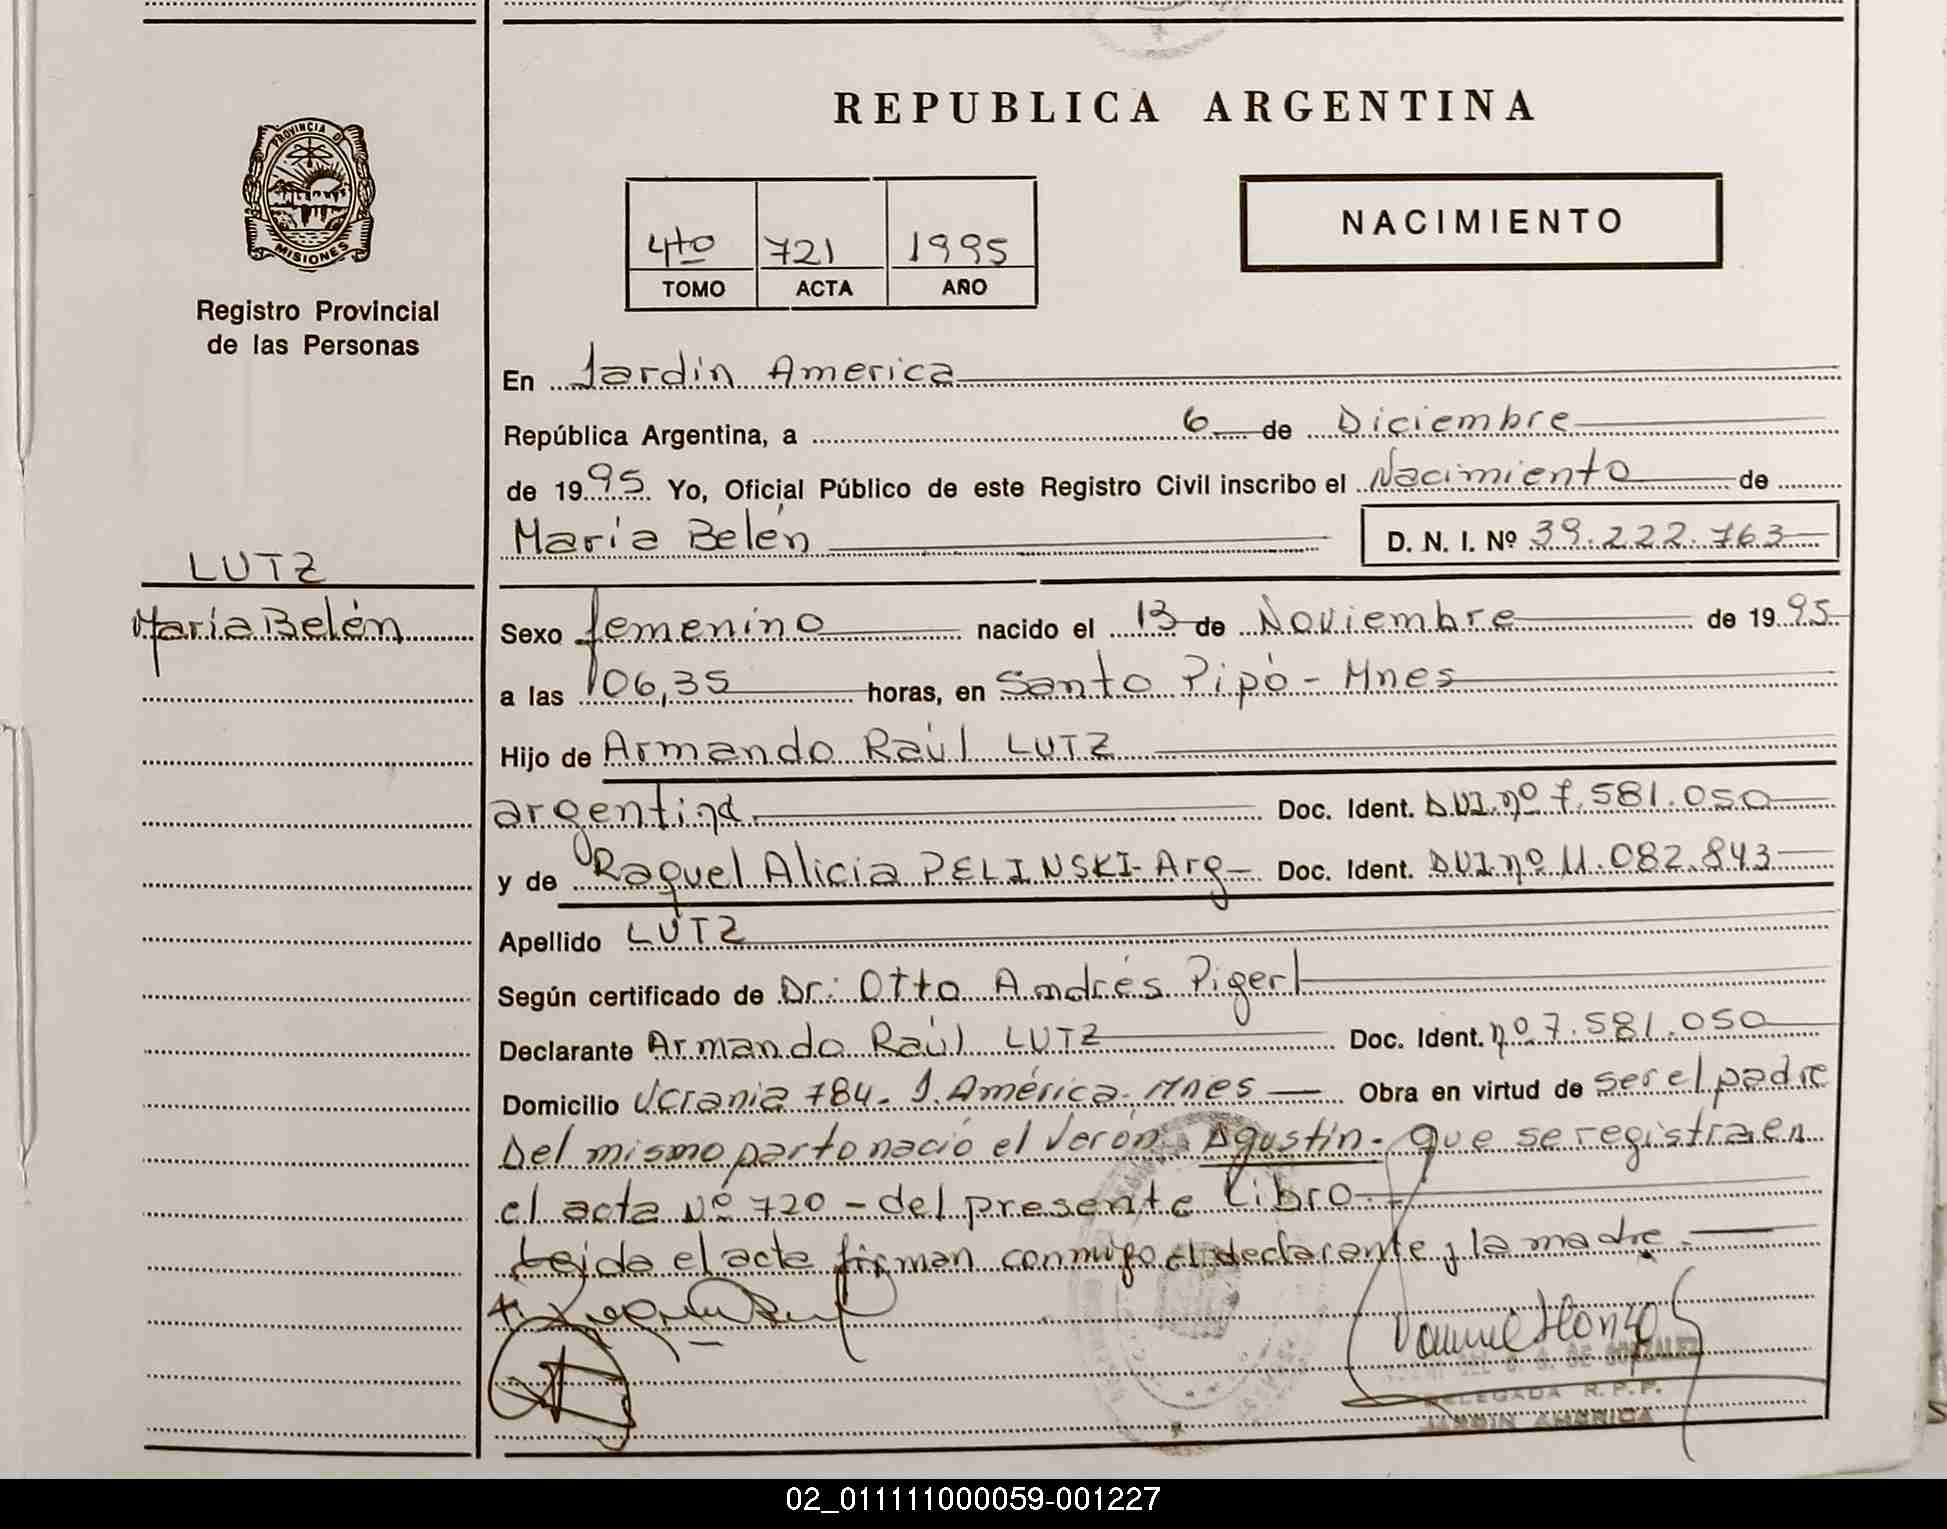 REPUBLICA ARGENTINA
PROVINCIA DE
MISIONES
Registro Provincial
de las Personas
4to 721 1995
TOMO ACTA AÑO
NACIMIENTO
En Jardín America
República Argentina, a 6 de Diciembre
de 1995 Yo, Oficial Público de este Registro Civil inscribo el Nacimiento de
María Belén D. N. I. Nº 39.222.763
LUTZ
María Belén
Sexo femenino nacido el 13 de Noviembre de 1995
a las 06,35 horas, en Santo Pipó - Mnes
Hijo de Armando Raúl LUTZ
argentina Doc. Ident. DUI. nº 7.581.050
y de Raquel Alicia PELINSKI - Arg Doc. Ident. DUI nº 11.082.843
Apellido LUTZ
Según certificado de Dr: Otto Andrés Pigerl
Declarante Armando Raúl LUTZ Doc. Ident. nº 7.581.050
Domicilio Ucrania 784. J. América. Mnes Obra en virtud de ser el padre
Del mismo parto nació el Verón Agustín. que se registra en
el acta Nº 720 - del presente Libro.
Leida el acta firman conmigo el declarante y la madre.
DE GONZALEZ
DELEGADA R.P.P.
JARDIN AMERICA
02_011111000059-001227